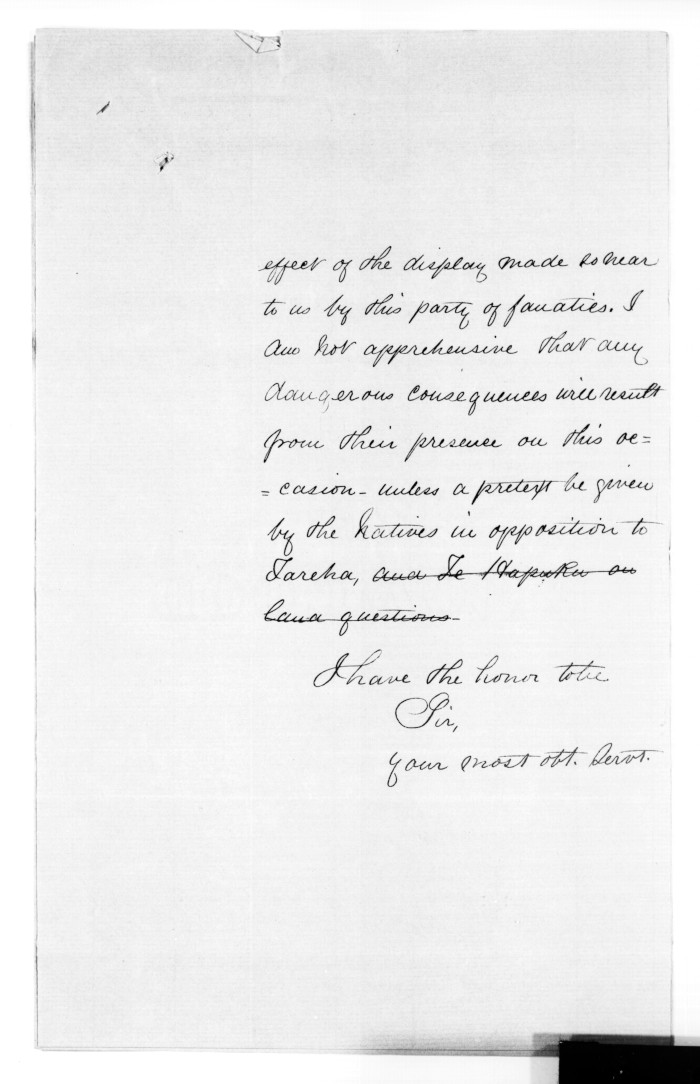 effect of the display made so near
to us by this party of fanatics. I
am not apprehensive that any
dangerous consequences will result
from their presence on this oc=
=casion - unless a pretext be given
by the Natives in opposition to
Tareha, ~~and Te Hapuku on~~
~~land questions~~ -
I have the honor to be
Sir,
your most obt. Servt.